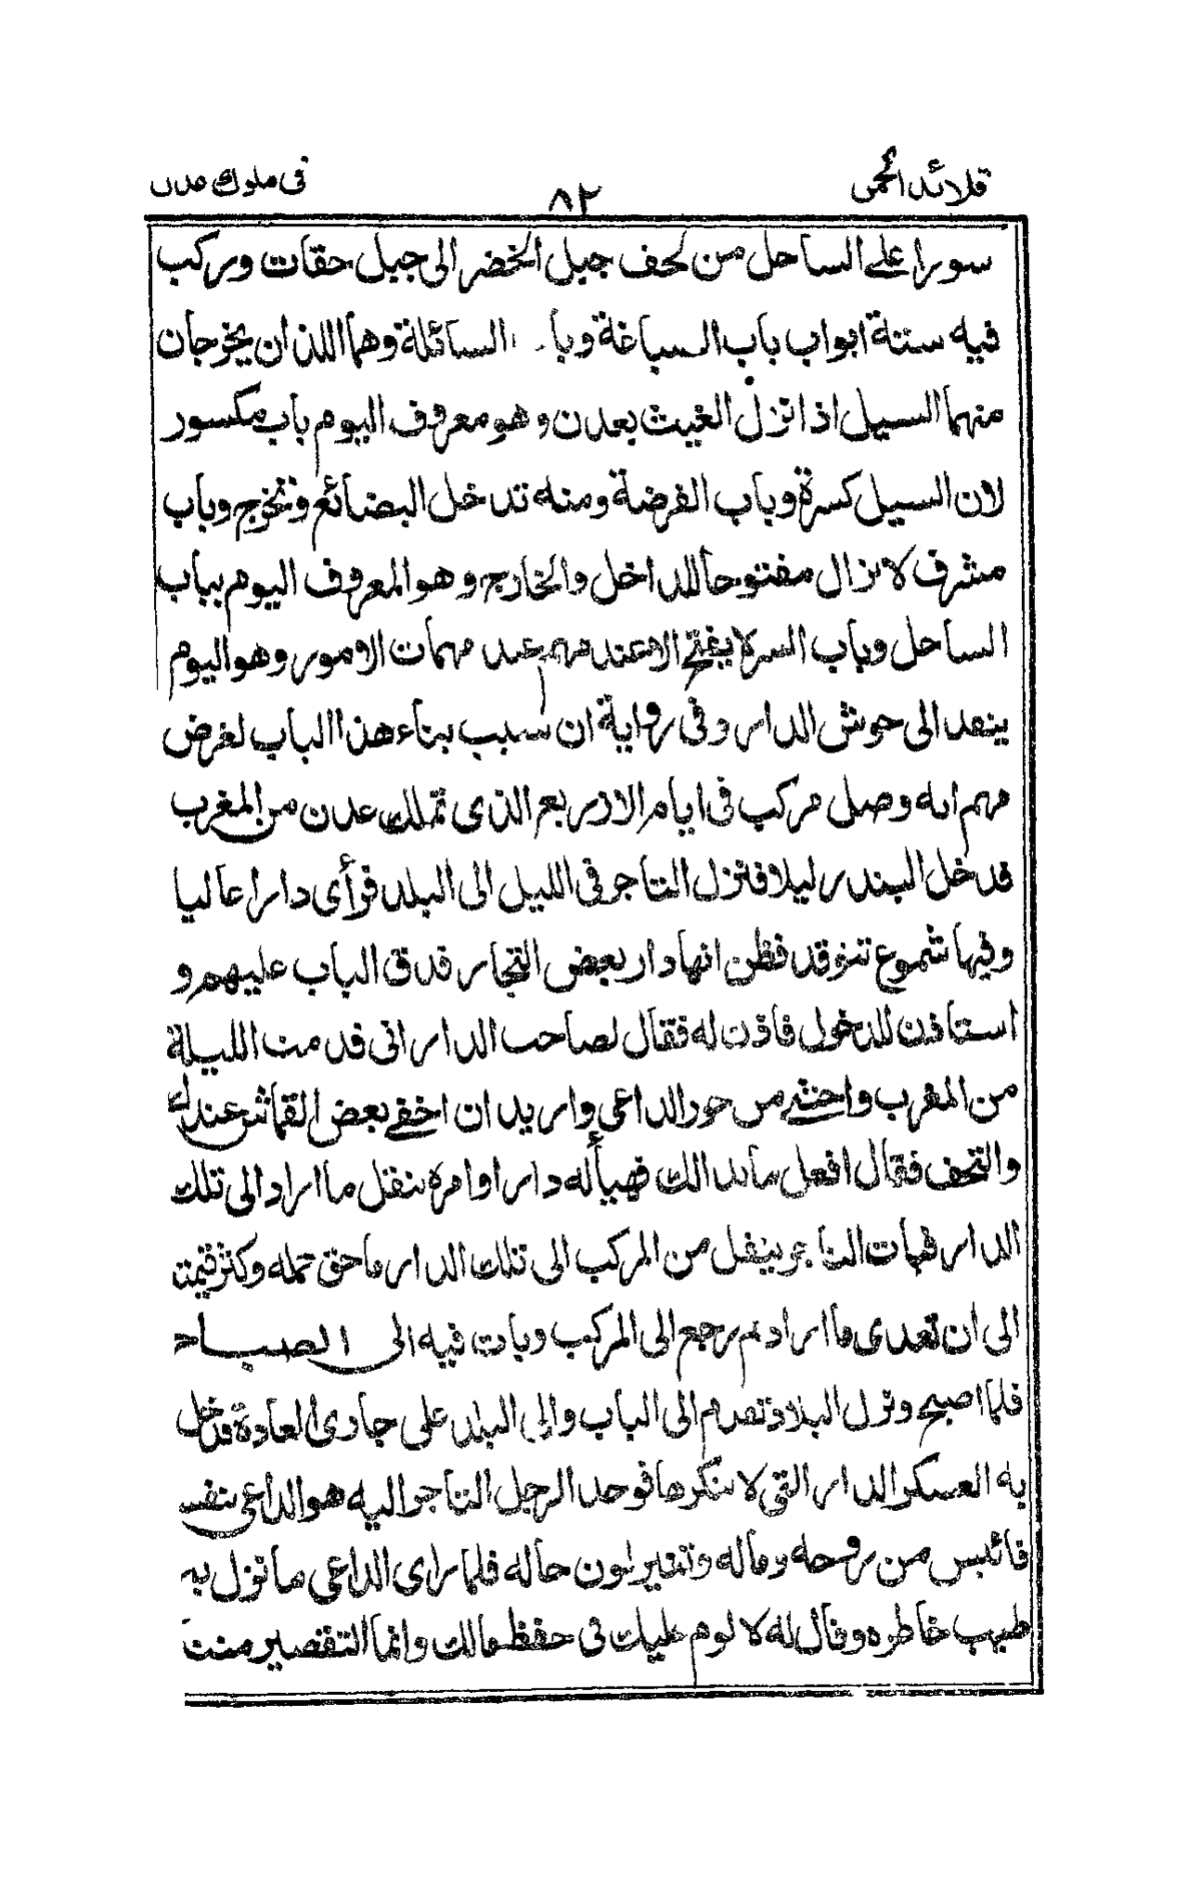 قلائد الجمن
٨٢
في ملوك عدن
سورا على الساحل من لحف جبل الخضر الى جبل حقات وركب
فيه ستة ابواب باب السباغة وبا السائلة وهما اللذان يخرجان
منهما السيل اذا نزل الغيث بعدن وهو معروف اليوم باب مكسور
لان السيل كسرة وباب الفرضة ومنه تدخل البضائع وتخرج وباب
مشرف لا يزال مفتوحا للداخل والخارج وهو المعروف اليوم بباب
الساحل وباب السر لا يفتح الا عند مهم عند مهمات الامور وهو اليوم
ينفد الى حوش الدار وفى رواية ان سبب بناء هذا الباب لغرض
مهم انه وصل مركب فى ايام الازريع الذى تملك عدن من المغرب
قد دخل البندر ليلا فنزل التاجر فى الليل الى البلد فرأى دارا عاليا
وفيها شموع تتوقد فظن انها دار بعض التجار فدق الباب عليهم و
استاذن للدخول فاذن له فقال لصاحب الدار انى قدمت الليلة
من المغرب واخشى من جور الداعى واريد ان اخفى بعض القماش عندك
والتحف فقال افعل ما بدالك فهيأله دارا وامره بنقل ما اراد الى تلك
الدار فبات التاجر ينقل من المركب الى تلك الدار ما خف حمله وكثر قيمته
الى ان تعدى ما اراد ثم رجع الى المركب وبات فيه الى الصباح
فلما اصبح ونزل البلاد تقدم الى الباب والى البلد على جارى العادة فدخل
به العسكر الدار التى لا ينكرها فوجد الرجل التاجر اليه هو الداعى بنفسه
فائيس من روحه وماله وتغير لون حاله فلما راى الداعى ما نزل به
طيب خاطره وقال له لا لوم عليك فى حفظ مالك وانما التقصير منت